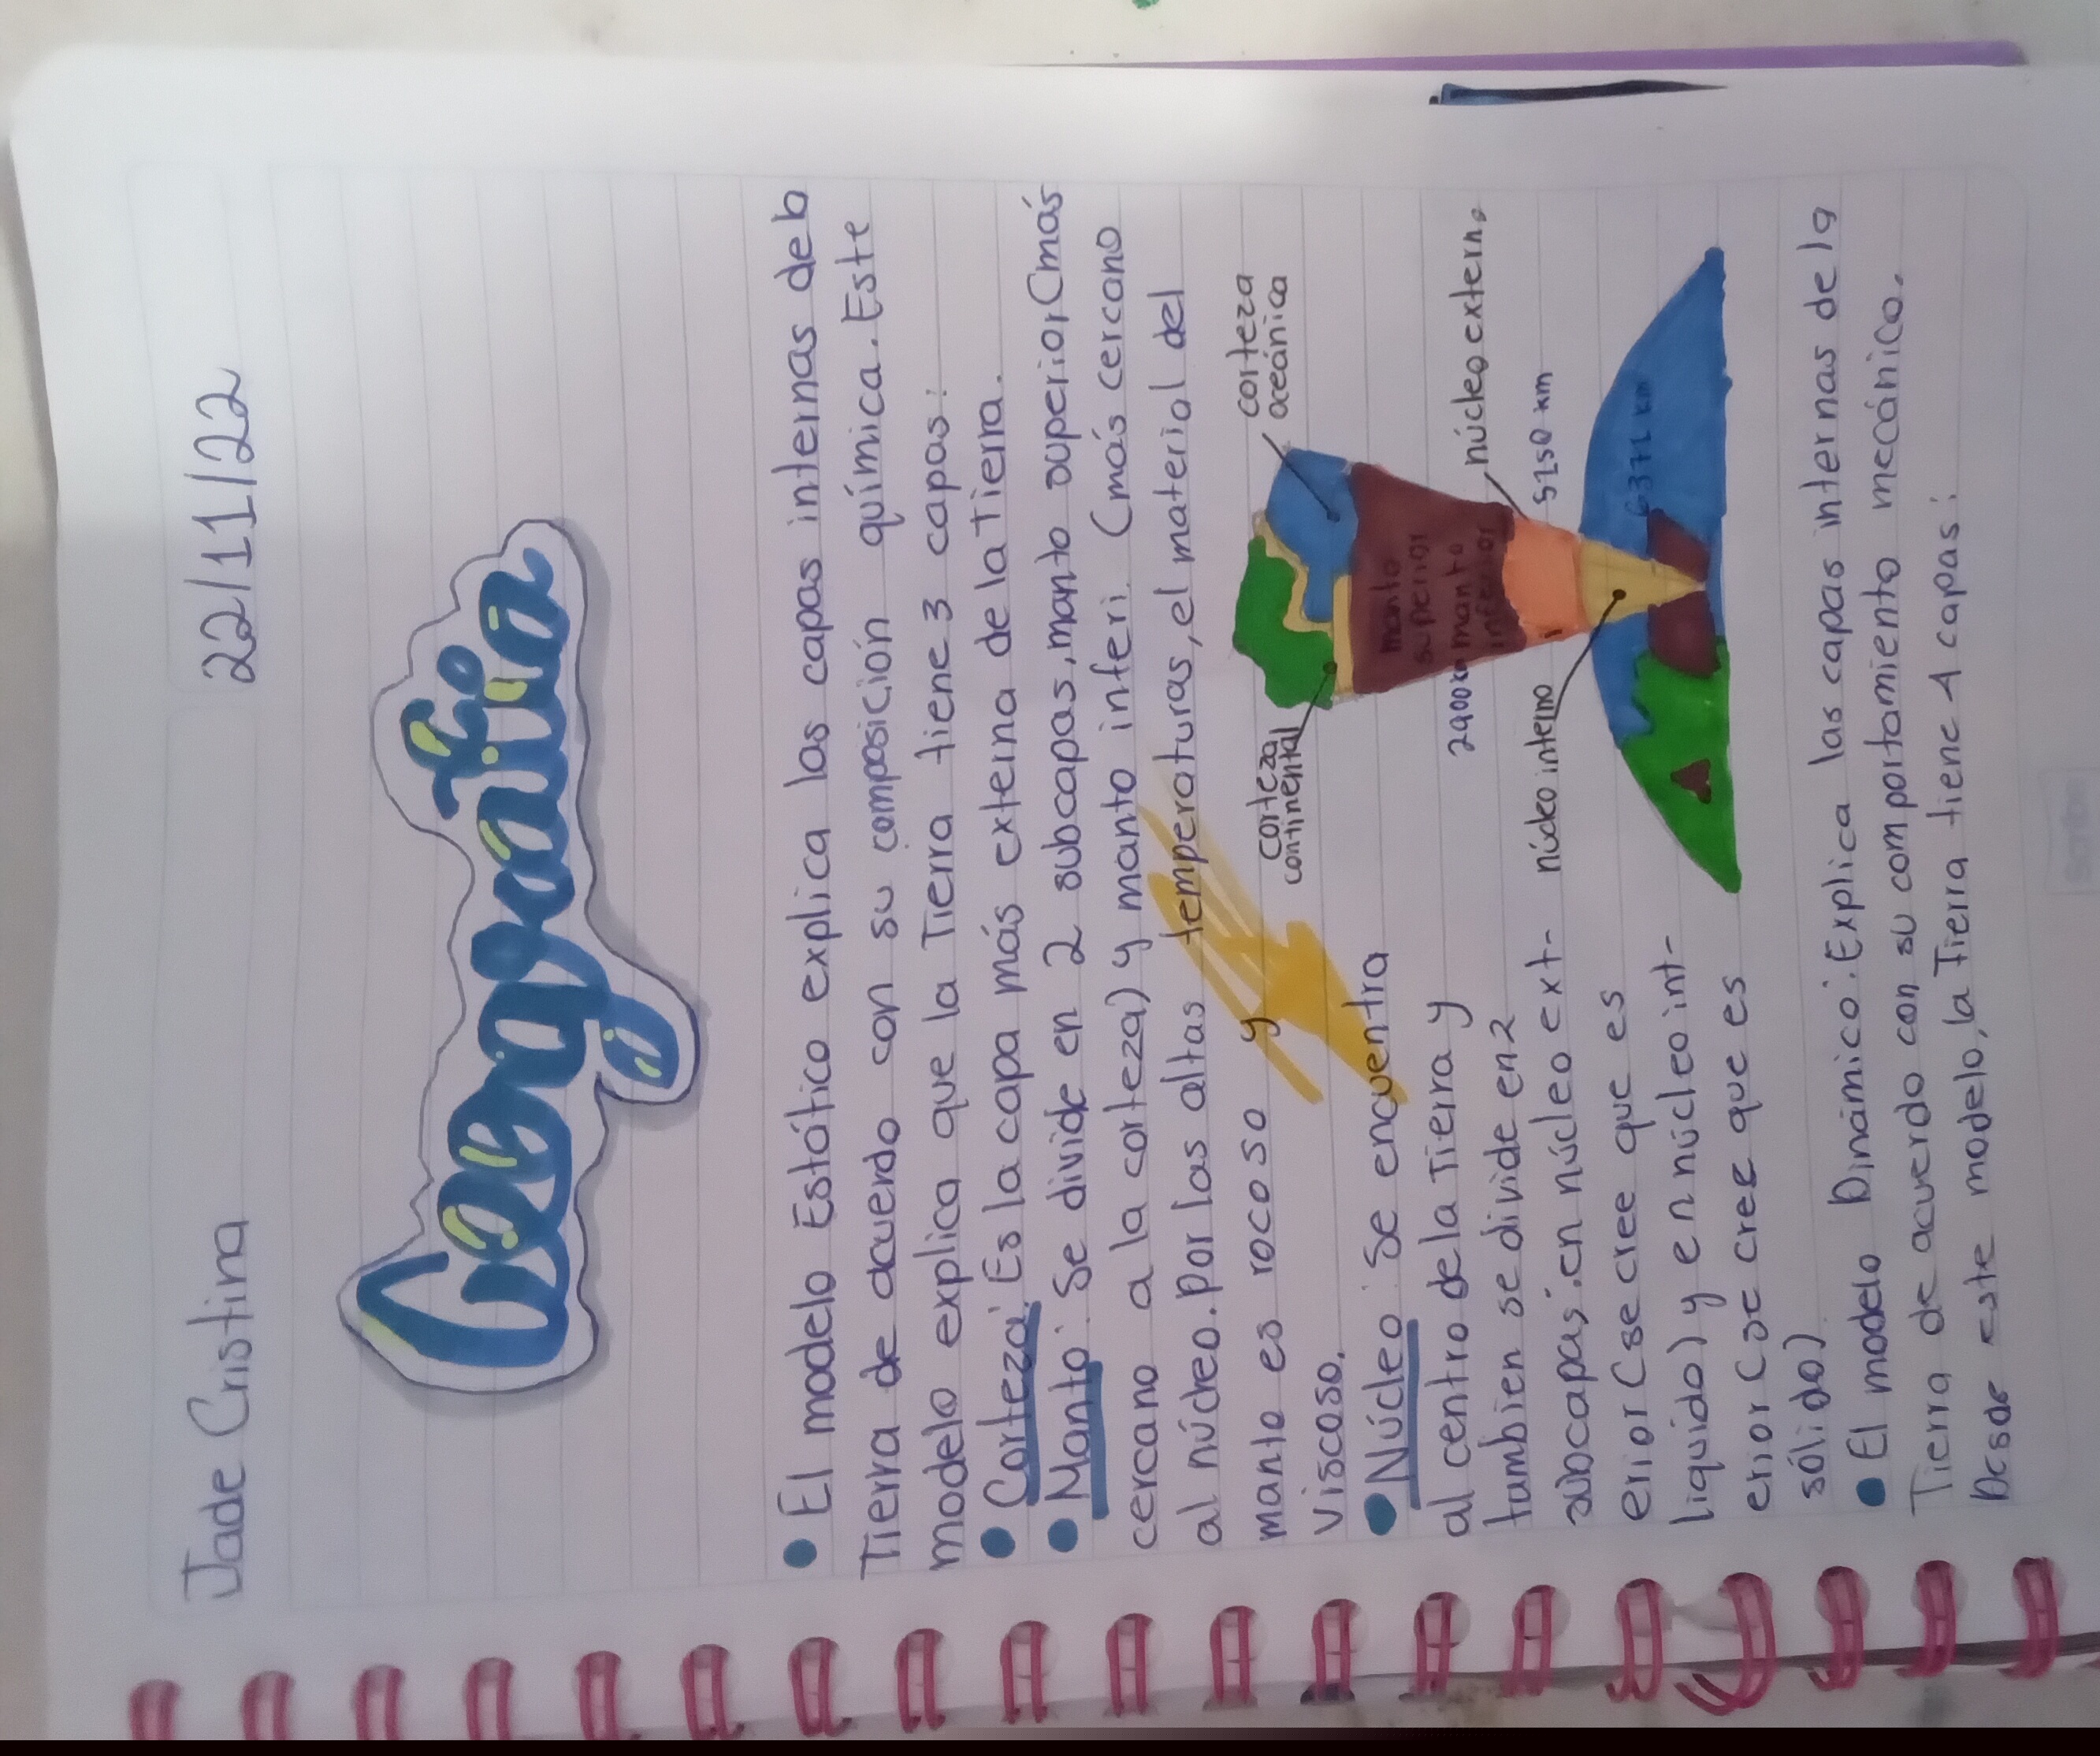 Jade Cristina 22/11/22
Geografía
• El modelo Estático explica las capas internas de la
Tierra de acuerdo con su composición química. Este
modelo explica que la Tierra tiene 3 capas:
• Corteza: Es la capa más externa de la Tierra.
• Manto: Se divide en 2 subcapas, manto superior (más
cercano a la corteza) y manto inferi. (más cercano
al núcleo. Por las altas temperaturas, el material del
manto es rocoso y
viscoso.
• Núcleo: Se encuentra
al centro de la Tierra y
tambien se divide en 2
subcapas: en núcleo ext-
erior (se cree que es
liquido) y en núcleo int-
erior (se cree que es
sólido)
corteza
oceánica
corteza
continental
manto
superior
manto
inferior
2900km
núcleo externo
5150 km
núcleo interno
6371 km
• El modelo Dinámico: Explica las capas internas de la
Tierra de acuerdo con su comportamiento mecánico.
Desde este modelo, la Tierra tiene 4 capas: